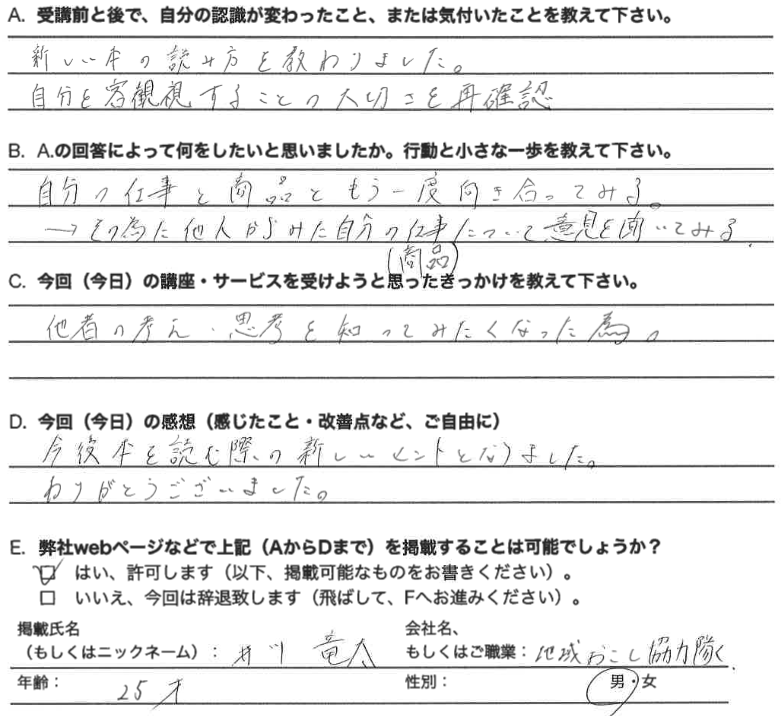 A. 受講前と後で、自分の認識が変わったこと、または気付いたことを教えて下さい。
新しい本の読み方を教わりました。
自分を客観視することの大切さを再確認
B. A.の回答によって何をしたいと思いましたか。行動と小さな一歩を教えて下さい。
自分の仕事と商品ともう一度向き合ってみる。
→その為に他人からみた自分の仕事について意見を聞いてみる.
(商品)
C. 今回（今日）の講座・サービスを受けようと思ったきっかけを教えて下さい。
他者の考え・思考を知ってみたくなった為。
D. 今回（今日）の感想（感じたこと・改善点など、ご自由に）
今後本を読む際の新しいヒントとなりました。
ありがとうございました。
E. 弊社webページなどで上記（AからDまで）を掲載することは可能でしょうか？
☑ はい、許可します（以下、掲載可能なものをお書きください）。
□ いいえ、今回は辞退致します（飛ばして、Fへお進みください）。
掲載氏名
（もしくはニックネーム）： 井川 竜太
会社名、
もしくはご職業： 地域おこし協力隊
年齢： 25才
性別： 男・女